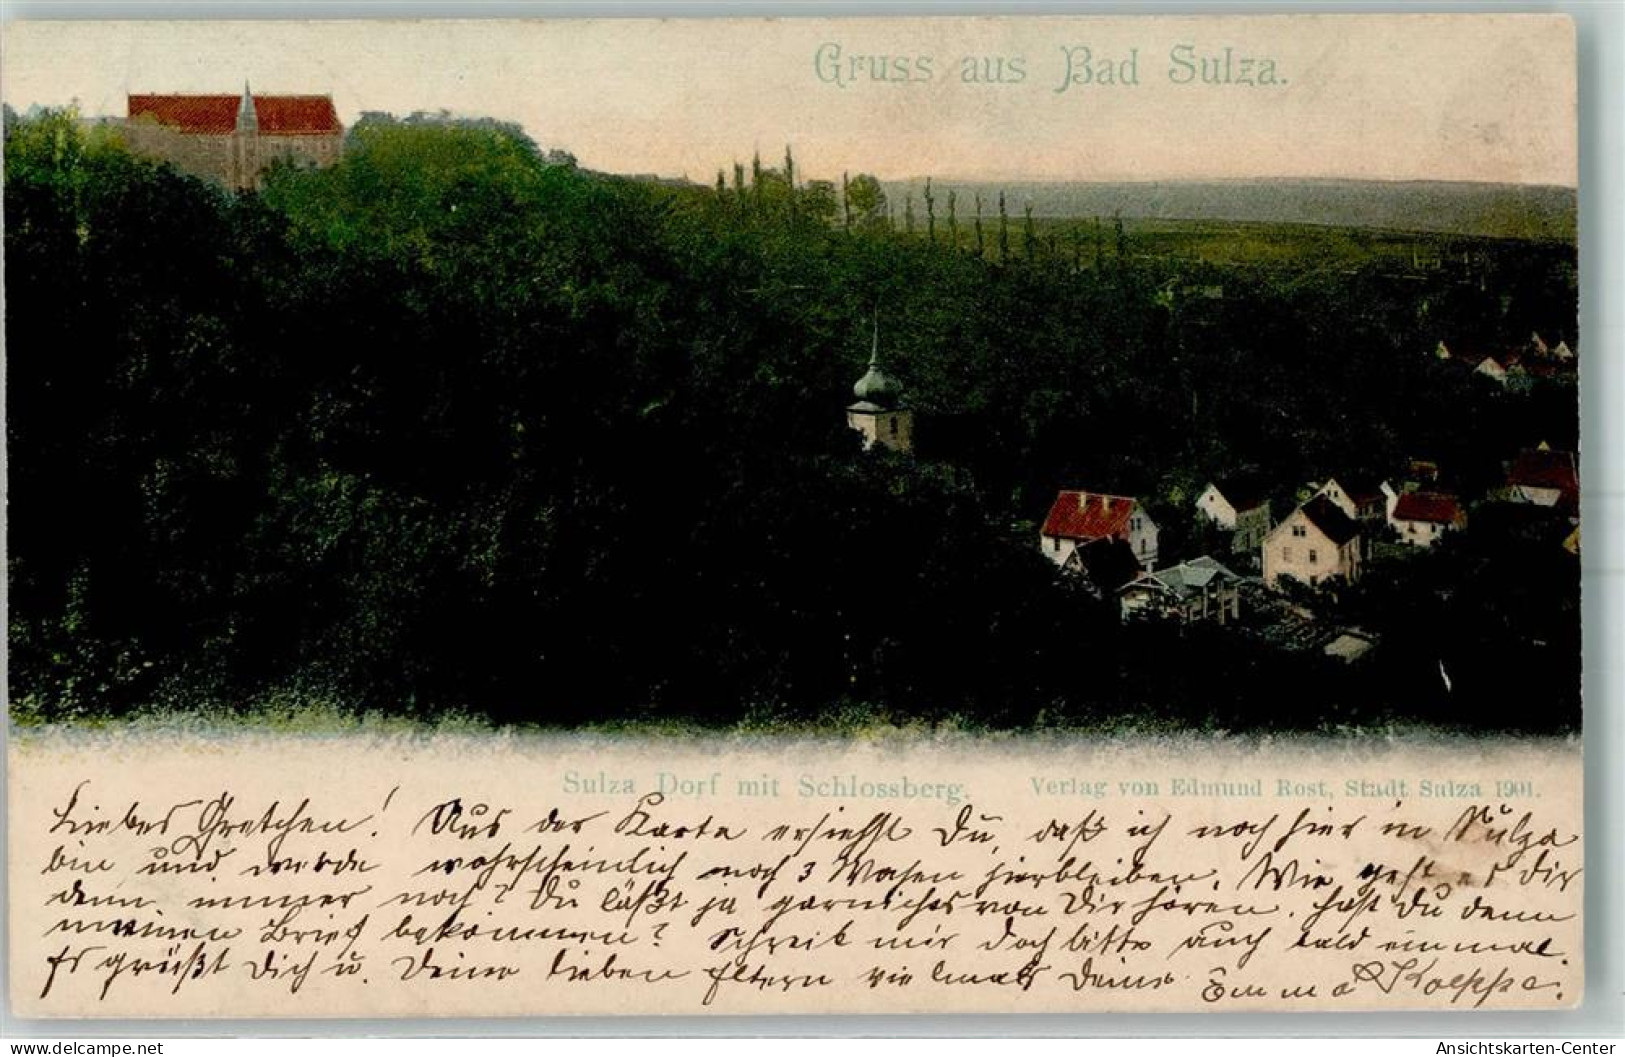 Gruss aus Bad Sulza.
Sulza Dorf mit Schlossberg.
Verlag von Edmund Rost, Stadt Sulza 1901.
Liebes Gretchen! Aus der Karte ersiehst Du, daß ich noch hier in Sulza
bin und werde wahrscheinlich noch 3 Wochen hierbleiben. Wie geht es Dir
denn immer noch? Du läßt ja garnichts von Dir hören. Hast Du denn
meinen Brief bekommen? Schreib mir doch bitte auch bald einmal.
Es grüßt Dich u. Deine lieben Eltern vielmals Deine Emma Koeppe.
www.delcampe.net
Ansichtskarten-Center